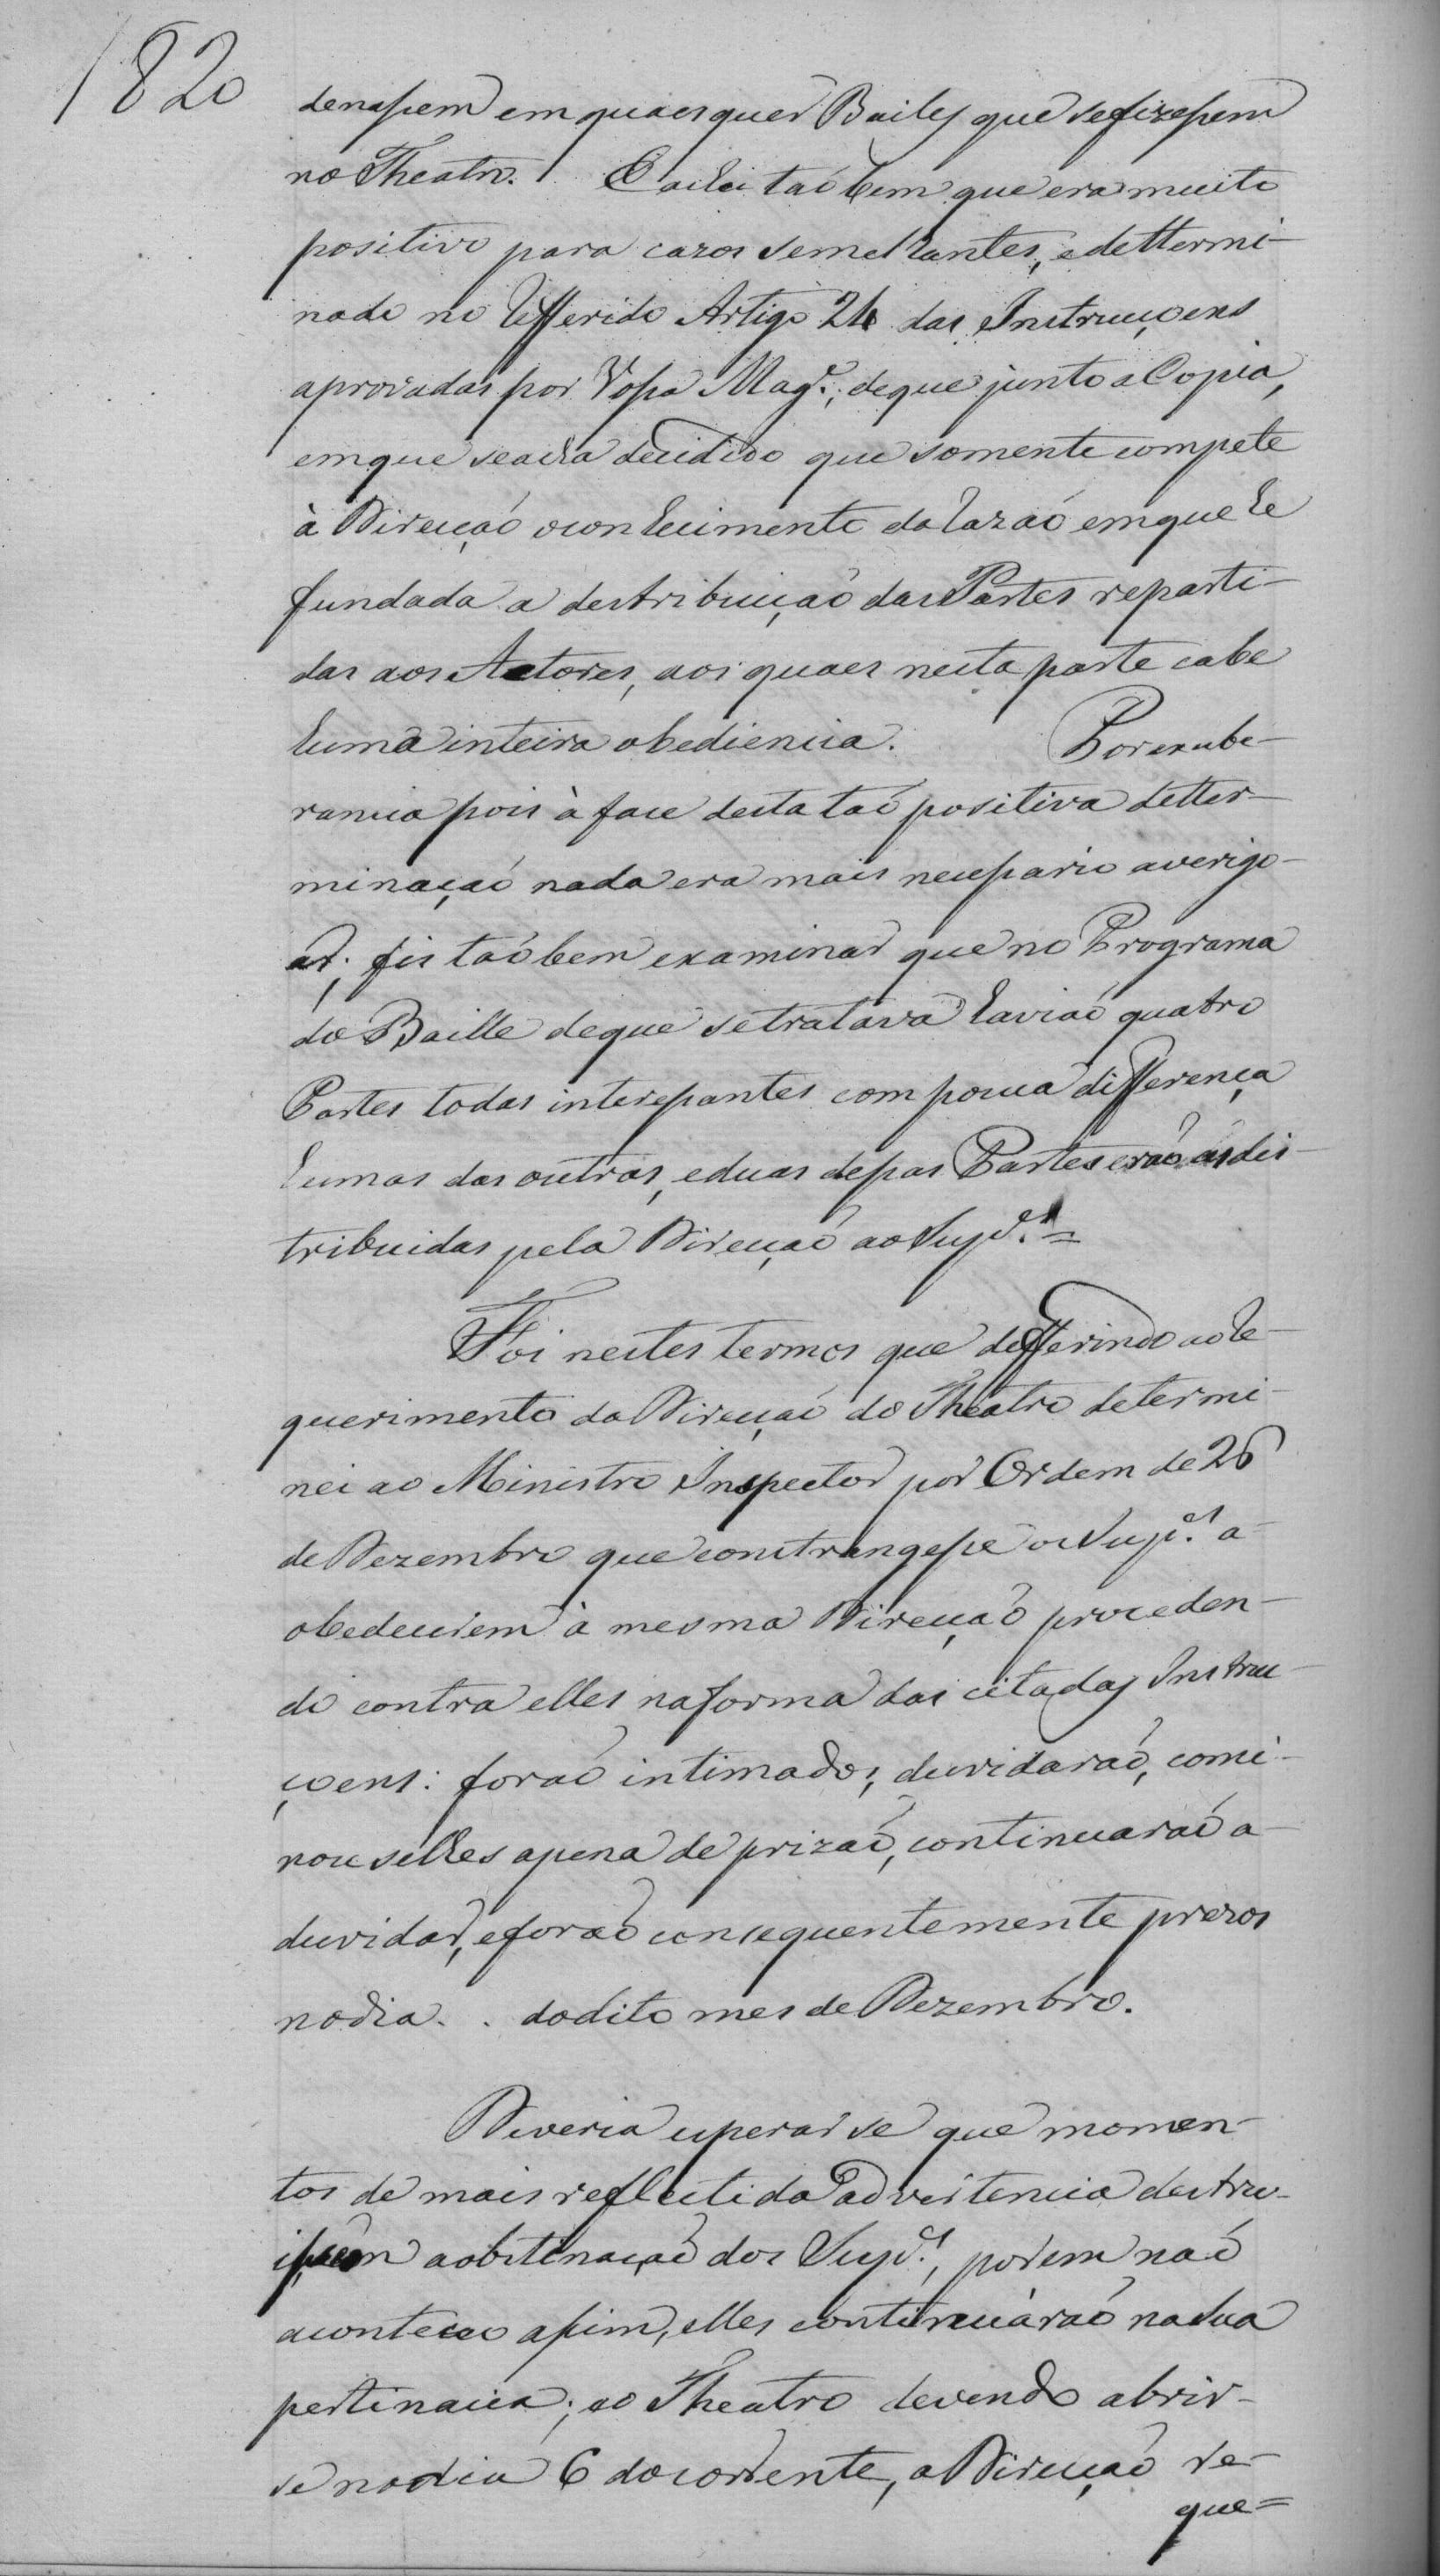 1820
denassem em quaesquer Bailes que se fizessem
no Theatro. E achei taõbem que era muito
positivo para cazos semelhantes, e dettermi-
nado no refferido Artigo 24 das Instrucçoens
aprovadas por Vossa Mag.e, de que junto a Copia,
em que se acha decidido que somente compete
à Direcçaõ o conhecimento da razaõ em que he
fundada a destribuiçaõ das Partes reparti-
das aos Actores, aos quaes nesta parte cabe
huma inteira obediencia. Por exube-
rancia pois à face desta taõ positiva detter-
minaçaõ nada era mais necessario averigo-
ar; fis taõbem examinar que no Programa
do Baille de que se tratava haviaõ quatro
Partes todas interessantes com pouca differença
humas das outras, e duas dessas Partes eraõ as des-
tribuidas pela Direcçaõ aos Sup.es =
Foi nestes termos que defferindo ao re-
querimento da Direcçaõ do Theatro determi-
nei ao Ministro Inspector por Ordem de 26
de Dezembro que constrangesse os Sup.es a
obedecerem à mesma Direcçaõ proceden-
do contra elles na forma das citadas Instruc-
çoens: foraõ intimados, duvidaraõ, comi-
nouselhes a pena de prizaõ, continuaraõ a
duvidar, e foraõ consequentemente prezos
no dia . . do dito mes de Dezembro.
Deveria esperar se que momen-
tos de mais reflectida advertencia destru-
issem a obstinaçaõ dos Sup.es, porem naõ
aconteceo assim, elles continuàraõ na sua
pertinacia; e o Theatro devendo abrir-
se no dia 6 do corrente, a Direcçaõ re-
que=